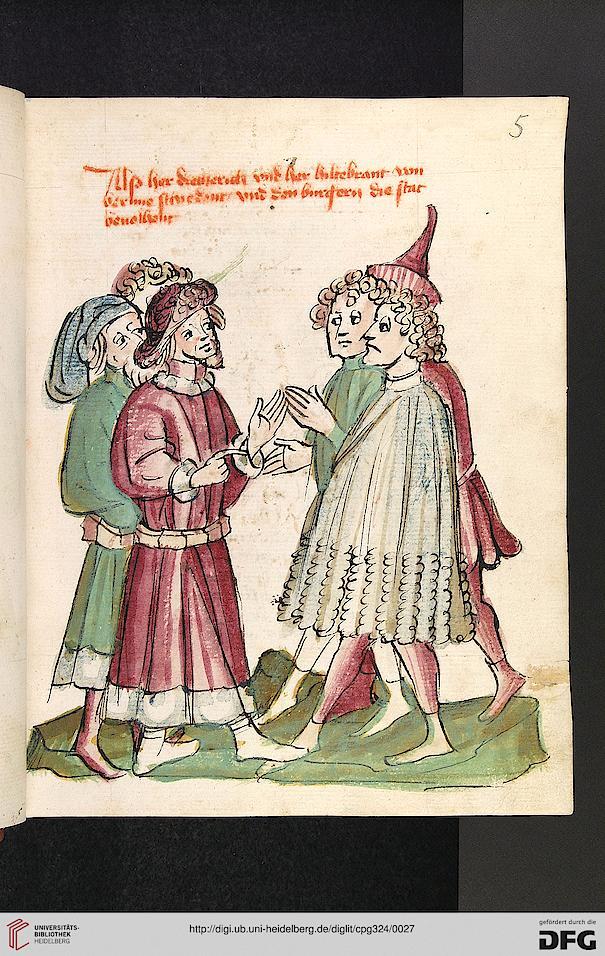 5
Also her dietterich vnd her hiltebrant von
berline schiedent vnd den burgern die stat
beuolhent
UNIVERSITÄTS-
BIBLIOTHEK
HEIDELBERG
http://digi.ub.uni-heidelberg.de/diglit/cpg324/0027
gefördert durch die
DFG